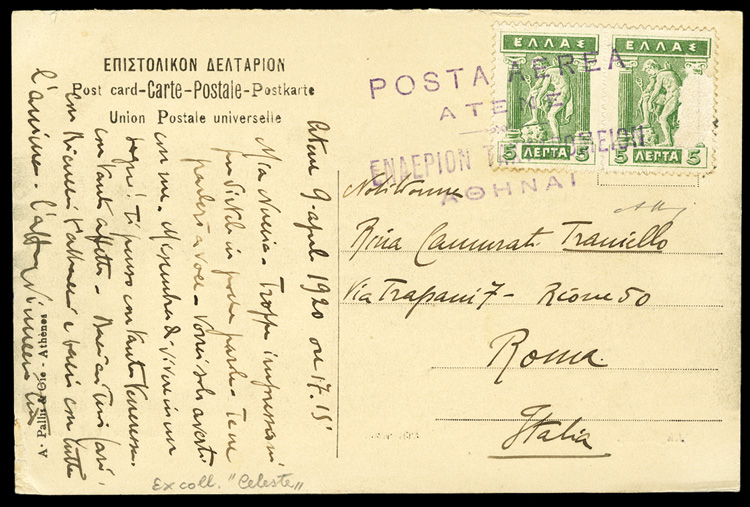 ΕΠΙΣΤΟΛΙΚΟΝ ΔΕΛΤΑΡΙΟΝ
Post card-Carte-Postale-Postkarte
Union Postale universelle
ΕΛΛΑΣ
5 ΛΕΠΤΑ 5
ΕΛΛΑΣ
5 ΛΕΠΤΑ 5
POSTA AEREA
ATENE
ΕΝΑΕΡΙΟΝ ΤΑΧΥΔΡΟΜΕΙΟΝ
ΑΘΗΝΑΙ
Atene 9. april 1920 ore 17.15
Mia Nuccia - Troppe impressioni
per dirtele in poche parole. Te ne
parlerò a voce - Vorrei solo averti
con me. Mi sembra di vivere in un
sogno! Ti penso con tanta
con tanto affetto -
e baci con tutta
l'anima -
Nobildonna
Rina Cammarati Traniello
Via Trapani 7 - Rione 50
Roma
Italia
A. Pallis & Cie - Athènes
Ex coll. "Celeste"